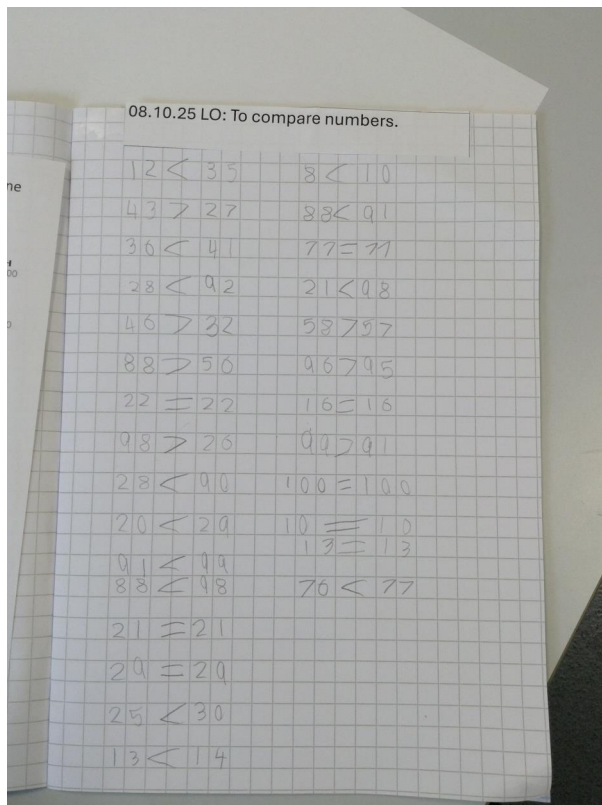 08.10.25 LO: To compare numbers.
12 < 35
43 > 27
36 < 41
28 < 92
46 > 32
88 > 56
22 = 22
98 > 26
28 < 90
20 < 29
91 < 99
88 < 98
21 = 21
29 = 29
25 < 30
13 < 14
8 < 10
88 < 91
77 = 77
21 < 98
58 > 57
96 > 95
16 = 16
99 > 91
100 = 100
10 = 10
13 = 13
76 < 77
ne